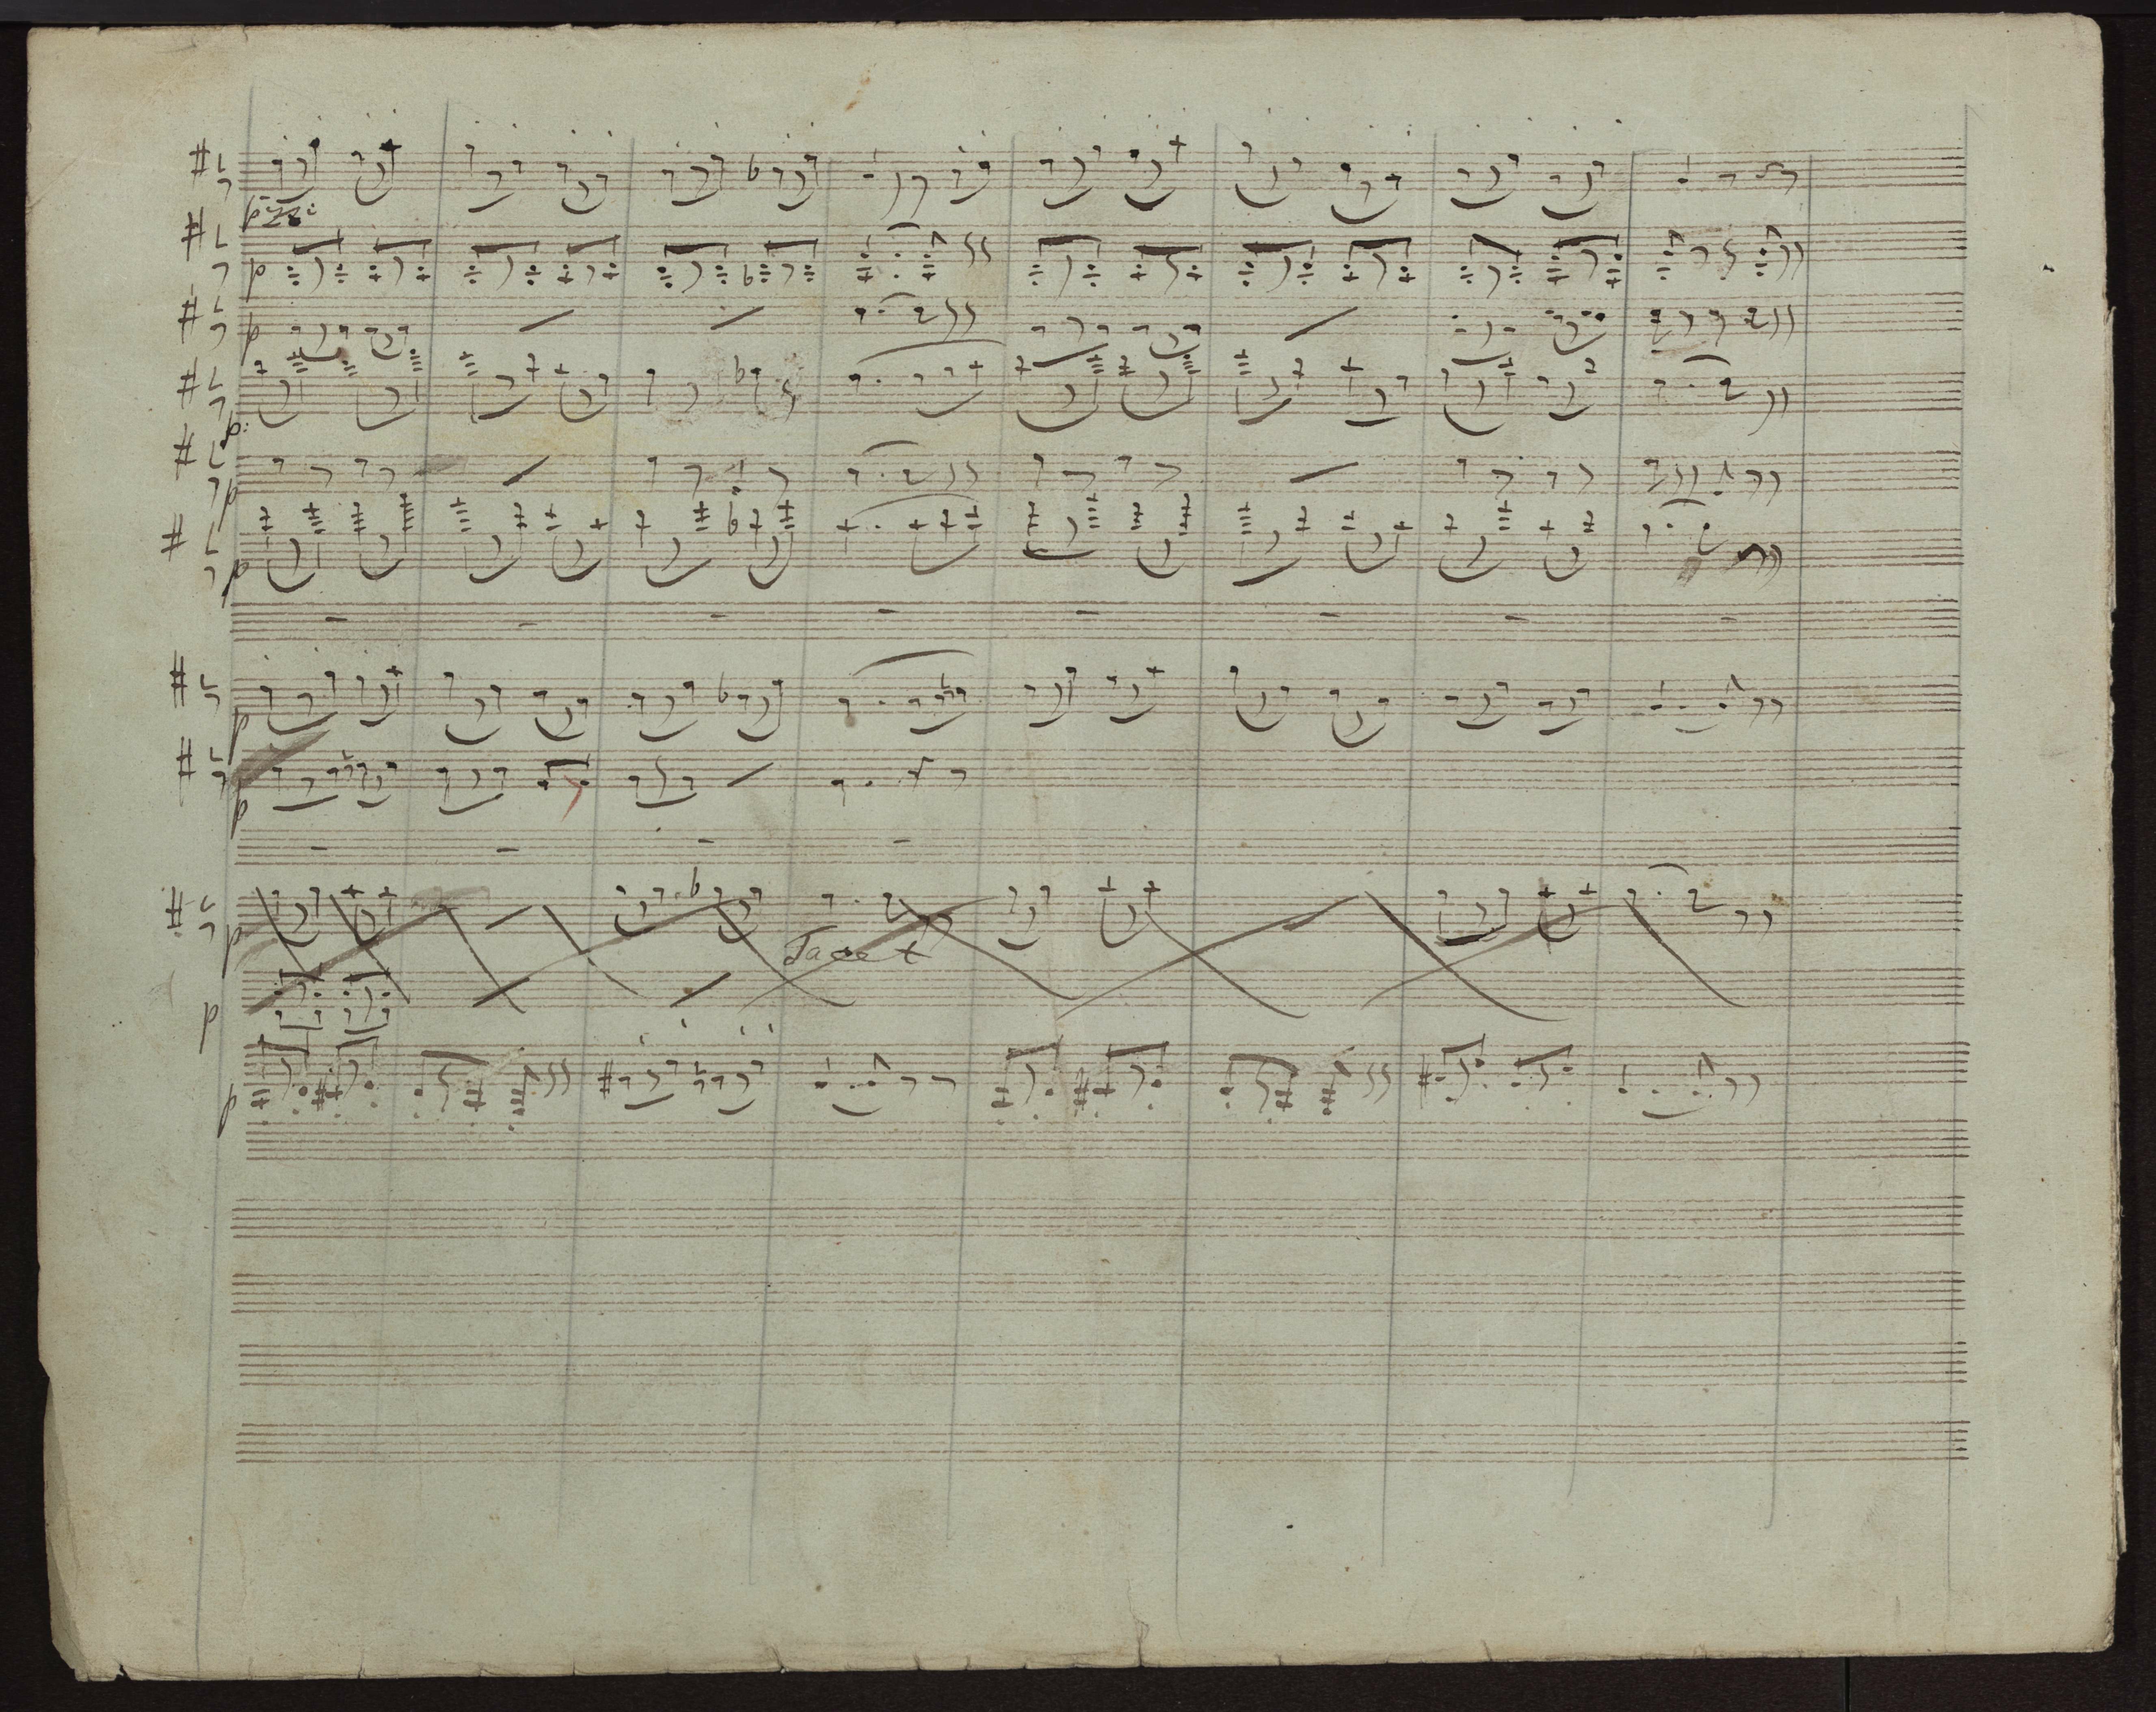 pizz:
p
p
p:
p
p
p
p
p
Tacet
p
p